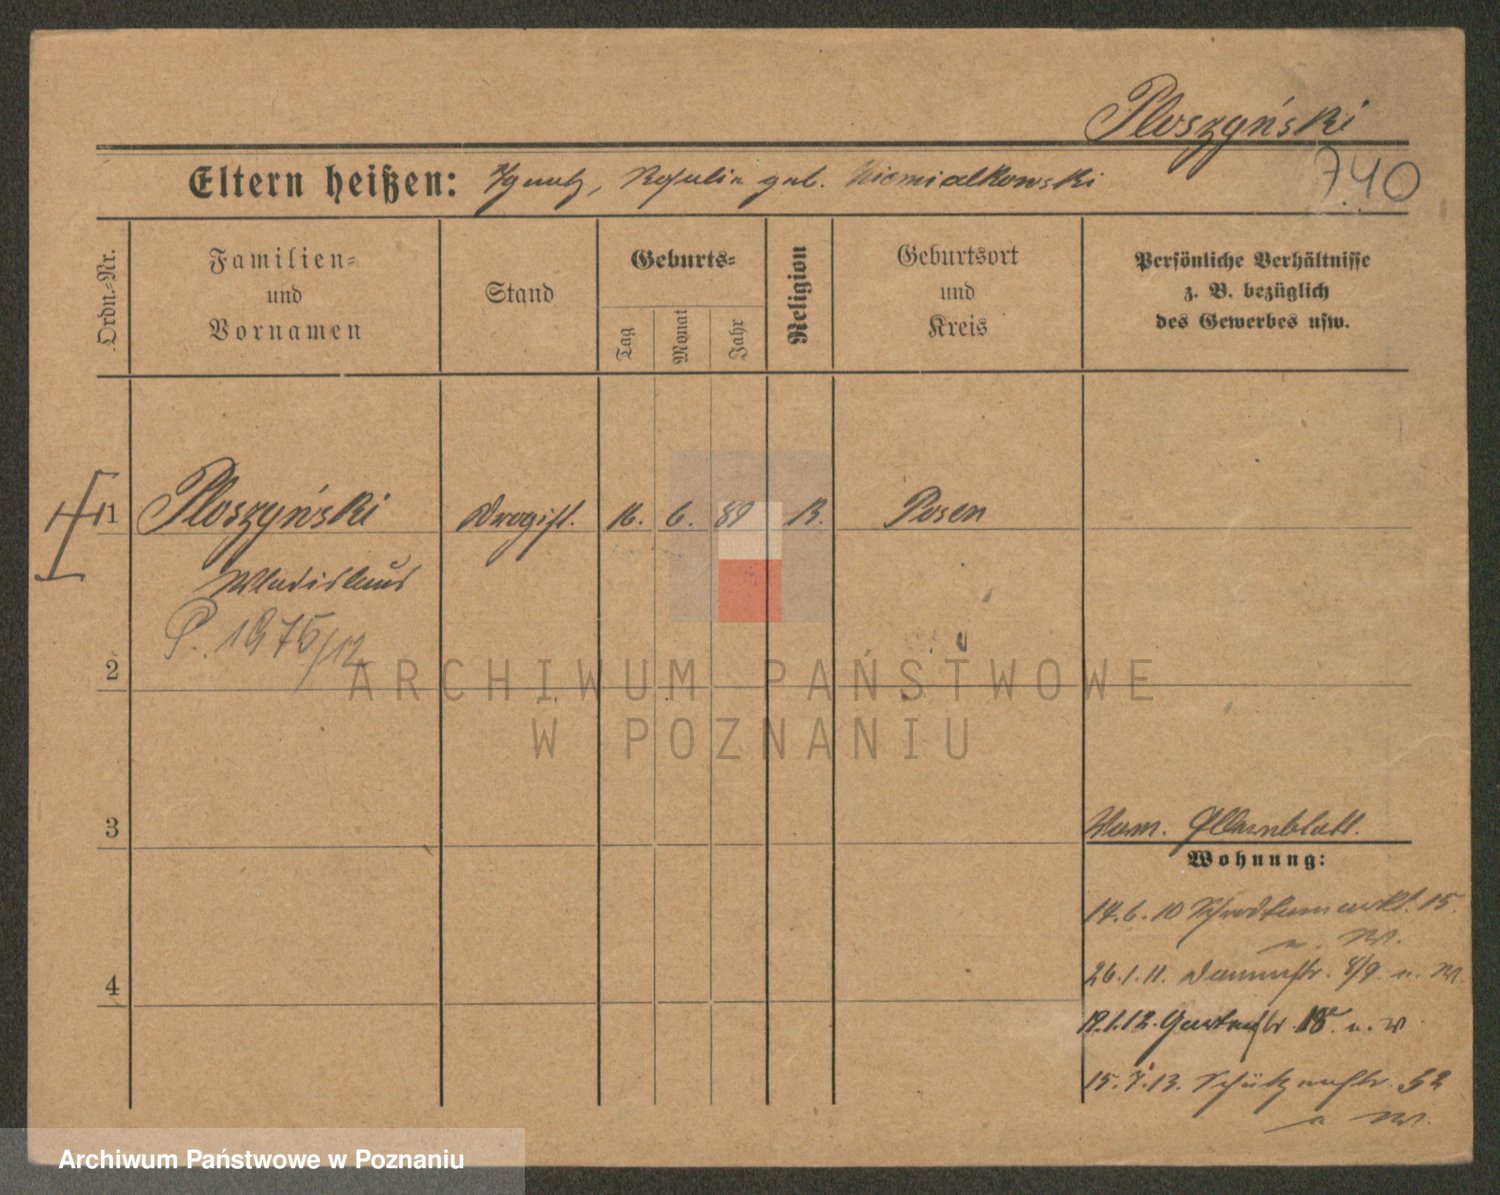 Ploszyński
740
Eltern heißen: Ignatz, Rosalia geb. Niemialkowski
Ordn.=Nr.
Familien=
und
Vornamen
Stand
Geburts=
Tag
Monat
Jahr
Religion
Geburtsort
und
Kreis
Persönliche Verhältnisse
z. B. bezüglich
des Gewerbes usw.
1 Ploszyński Drogist. 16. 6. 89 K. Posen
Wladislaus
P. 1975/12
2
ARCHIWUM PAŃSTWOWE
W POZNANIU
3
Elternblatt.
Wohnung:
14.6.10 15.
26.1.11. Dammstr. 8/9. u. W.
19.1.12. Gartenstr. 18. u. W.
4
15.7.13. Schützenstr. 32
u W.
Archiwum Państwowe w Poznaniu